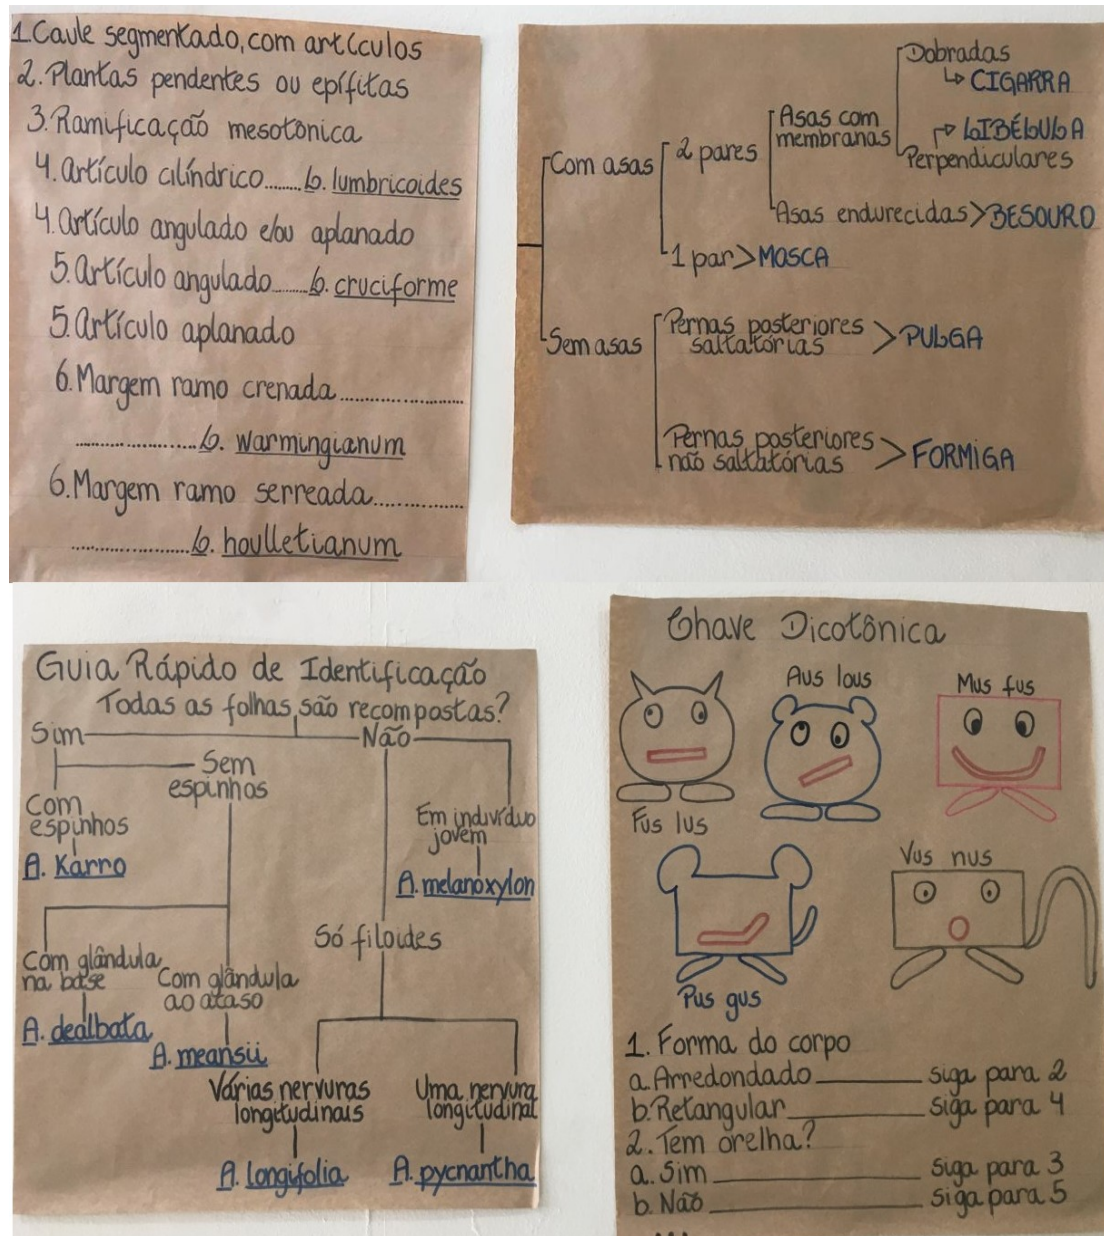 1. Caule segmentado, com artículos
2. Plantas pendentes ou epífitas
3. Ramificação mesotônica
4. artículo cilíndrico........ L. lumbricoides
4. artículo angulado e/ou aplanado
5. artículo angulado........ L. cruciforme
5. artículo aplanado
6. Margem ramo crenada....................
.................... L. warmingianum
6. Margem ramo serreada................
.................... L. houlletianum
Com asas
2 pares
Asas com
membranas
Dobradas
CIGARRA
LIBÉLULA
Perpendiculares
Asas endurecidas > BESOURO
1 par > MOSCA
Sem asas
Pernas posteriores
saltatórias > PULGA
Pernas posteriores
não saltatórias > FORMIGA
Guia Rápido de Identificação
Todas as folhas são recompostas?
Sim
Não
Sem
espinhos
Com
espinhos
A. Karro
Em indivíduo
jovem
A. melanoxylon
Só filoides
Com glândula
na base
A. dealbata
Com glândula
ao ataso
A. meansii
Várias nervuras
longitudinais
A. longifolia
Uma nervura
longitudinal
A. pycnantha
Chave Dicotônica
Fus lus
Aus lous
Mus fus
Pus gus
Vus nus
1. Forma do corpo
a. Arredondado__________ siga para 2
b. Retangular__________ siga para 4
2. Tem orelha?
a. Sim__________ siga para 3
b. Não__________ siga para 5